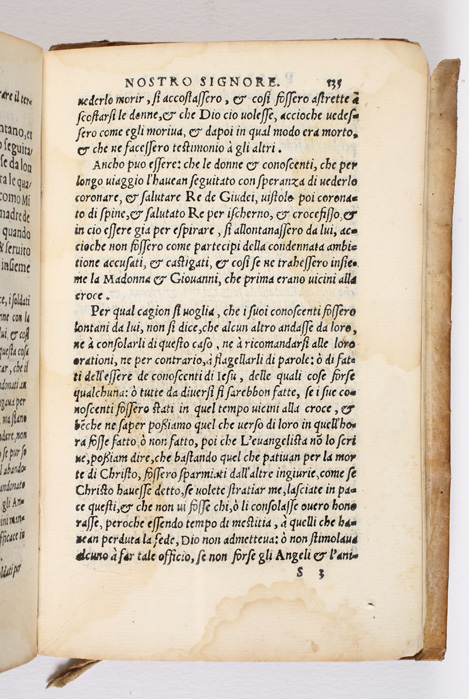 are il ter-
ntano, et
seguita
se da lon
ta le qua
como Mi
madre de
quando
& seruito
insieme
ce, i soldati
lui, & così
questa cosa
ar, che il
NOSTRO SIGNORE. 135
uederlo morir, si accostassero, & così fossero astrette à
scostarsi le donne, & che Dio cio uolesse, accioche uedes-
sero come egli moriua, & dapoi in qual modo era morto,
& che ne facessero testimonio à gli altri.
Ancho puo essere: che le donne & conoscenti, che per
longo viaggio l'hauean seguitato con speranza di uederlo
coronare, & salutare Re de Giudei, uistolo poi corona-
to di spine, & salutato Re per ischerno, & crocefisso, &
in cio essere gia per espirare, si allontanassero da lui, ac-
cioche non fossero come partecipi della condennata ambi-
tione accusati, & castigati, & così se ne trahessero insie-
me la Madonna & Giouanni, che prima erano uicini alla
croce.
Per qual cagion si uoglia, che i suoi conoscenti fossero
lontani da lui, non si dice, che alcun altro andasse da loro,
ne à consolarli di questo caso, ne à ricomandarsi alle loro
orationi, ne per contrario, à flagellarli di parole: ò di fat-
ti dell'essere de conoscenti di Iesù, delle quali cose forse
qualchuna: ò tutte da diuersi si sarebbon fatte, se i sue co-
noscenti fossero stati in quel tempo uicini alla croce, &
bẽche ne saper poßiamo quel che uerso di loro in quell'ho
ra fosse fatto ò non fatto, poi che L'euangelista nõ lo scri
ue, poßiam dire, che bastando quel che patiuan per la mor
te di Christo, fossero sparmiati dall'altre ingiurie, come se
Christo hauesse detto, se uolete stratiar me, lasciate in pa-
ce questi, & che non ui fosse chi, ò li consolasse ouero hono
rasse, peroche essendo tempo di mestitia, à quelli che ha-
uean perduta la fede, Dio non admetteua: ò non stimolaua
alcuno à far tale officio, se non forse gli Angeli & l'ani-
S 3